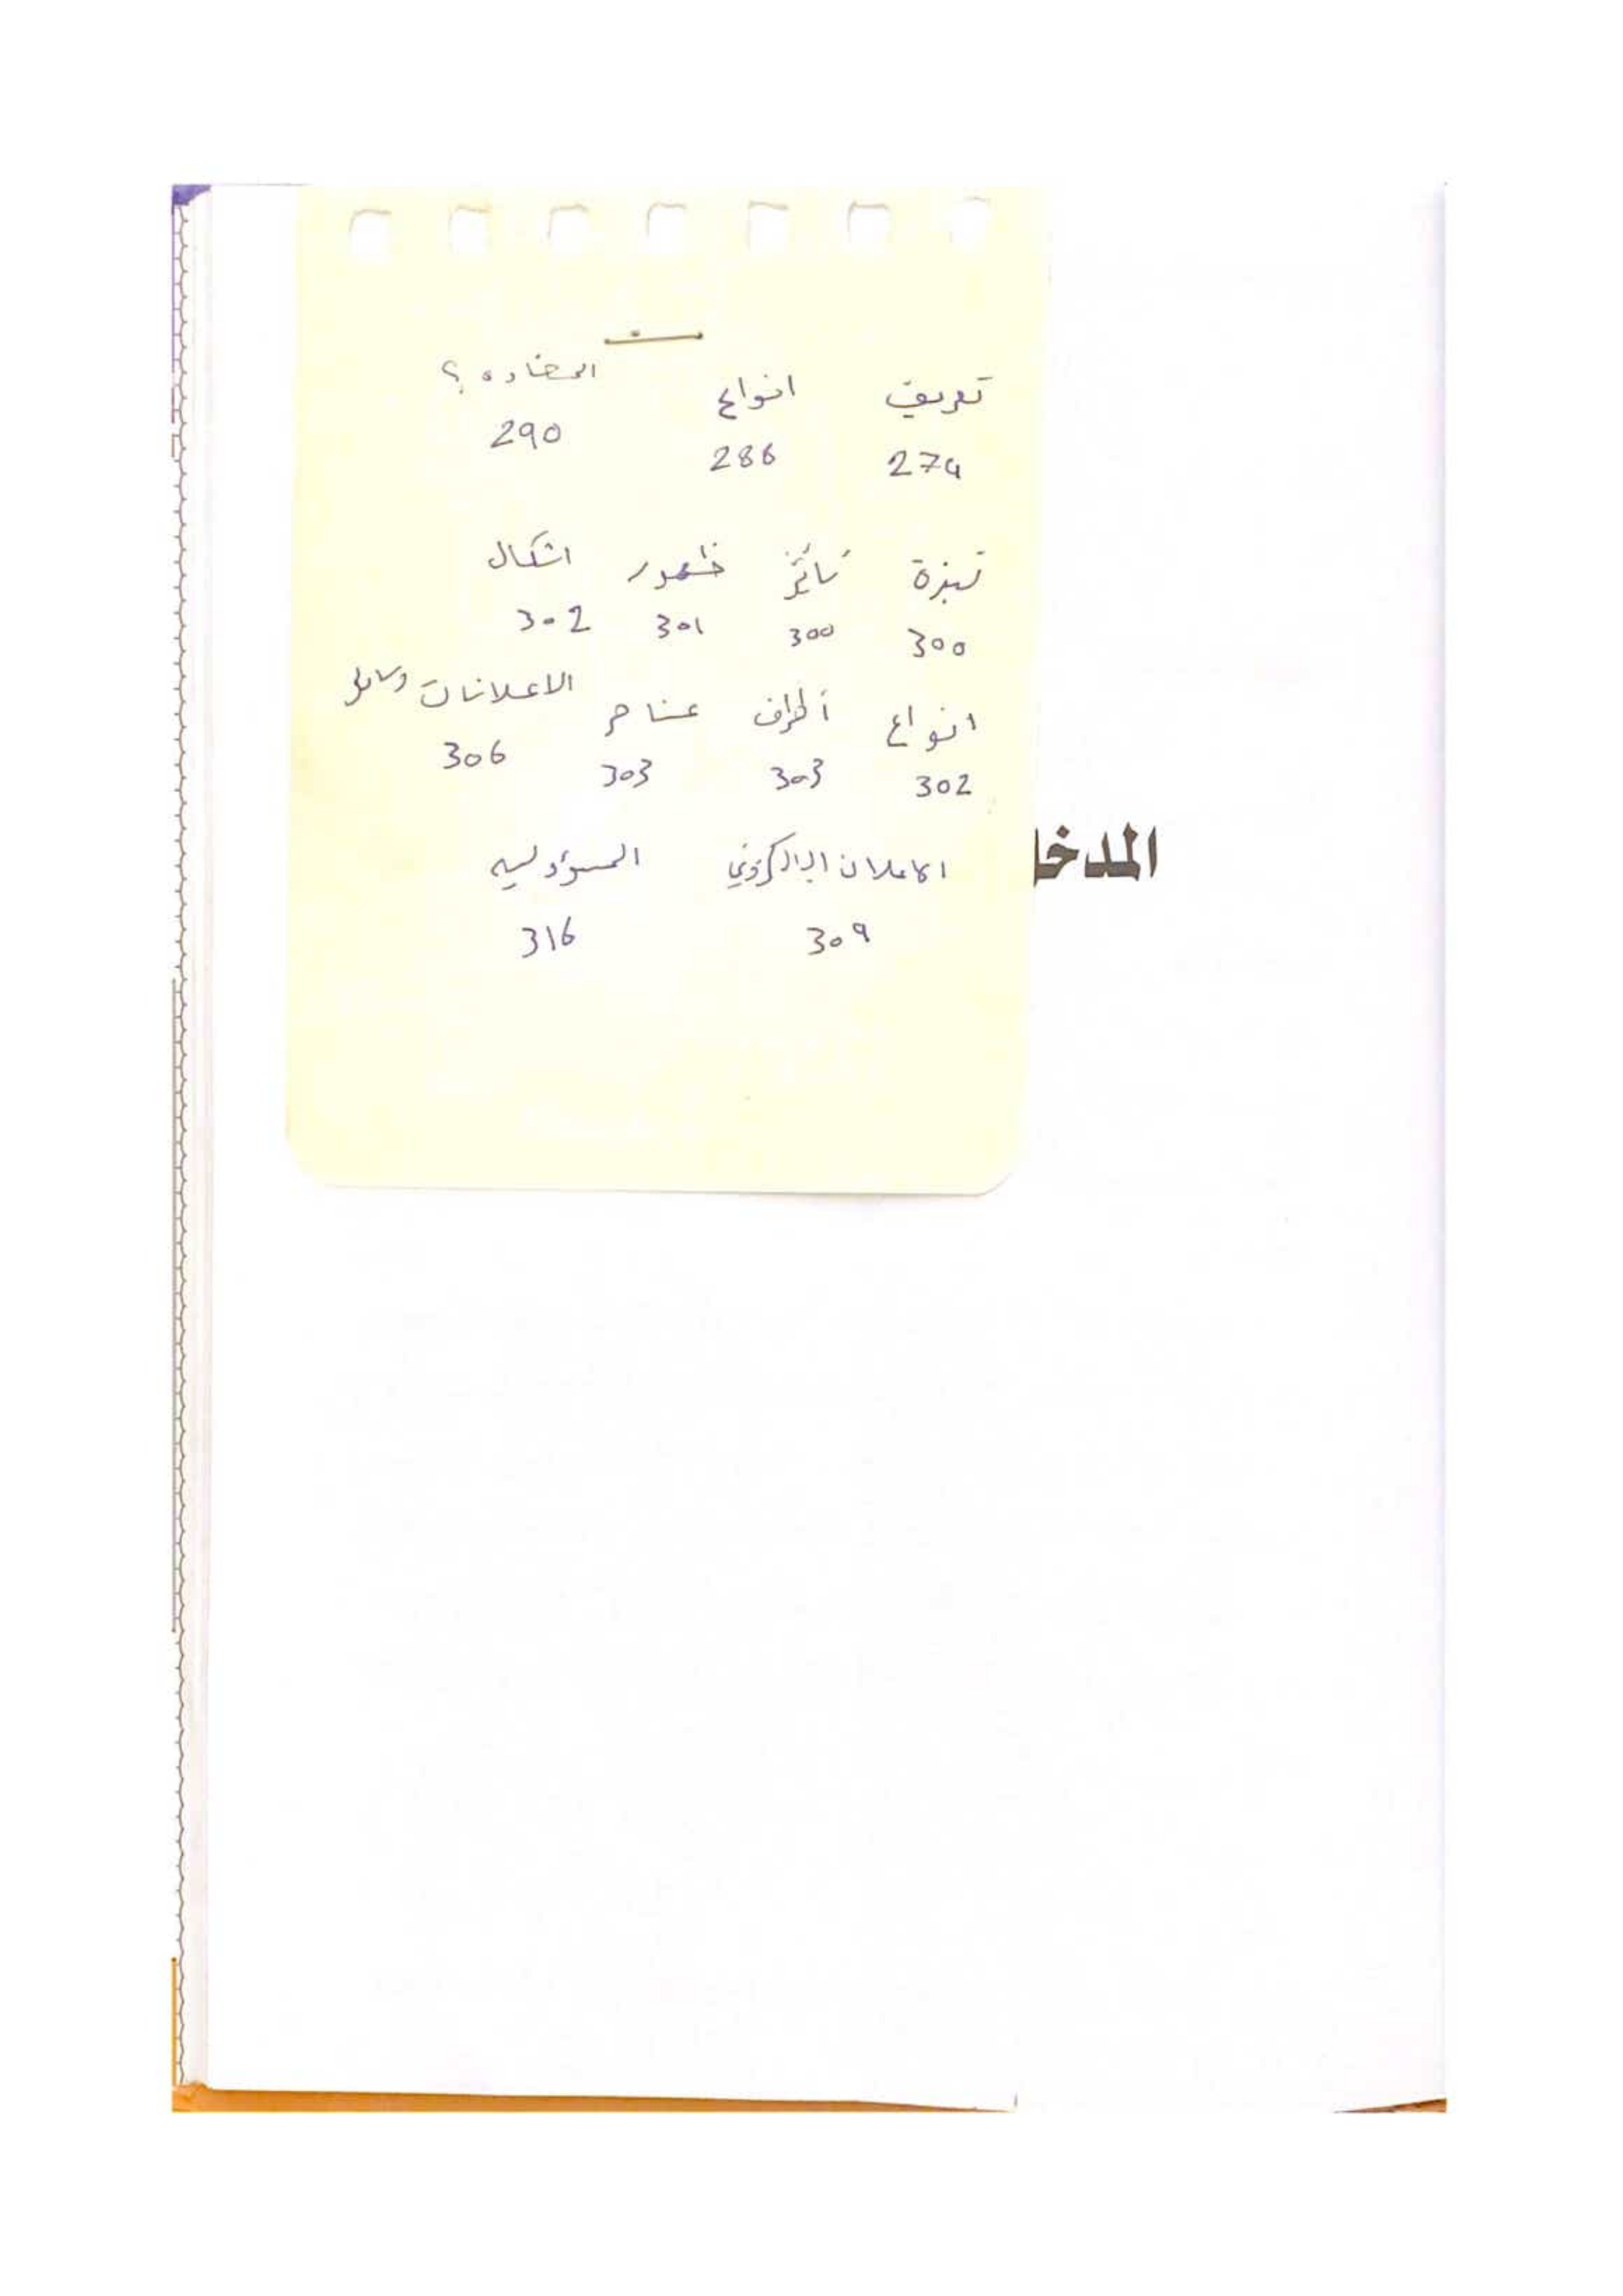 تعريف انواع
274 286 290
نبذة ظهور اشكال
300 300 301 302
انواع أطراف عناصر الاعلانات
302 303 303 306
الاعلان الالكتروني المسؤوليه
309 316
المدخل